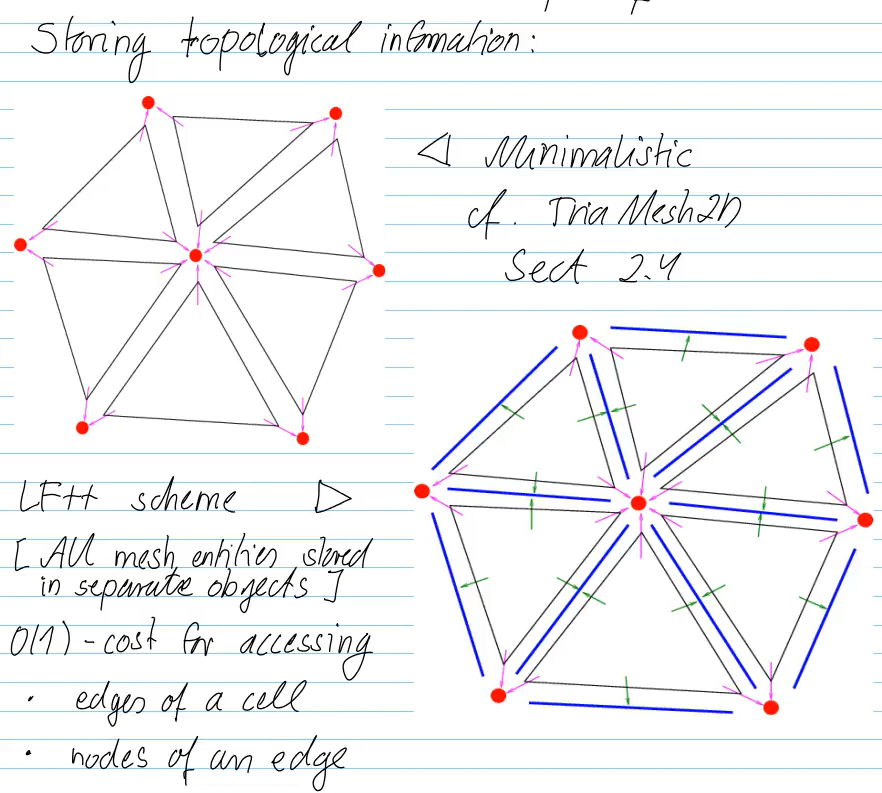 Storing topological information:
◁ Minimalistic
cf. TriaMesh2D
Sect 2.4
LF++ scheme ▷
[ All mesh entities stored
in separate objects ]
O(1)-cost for accessing
· edges of a cell
· nodes of an edge